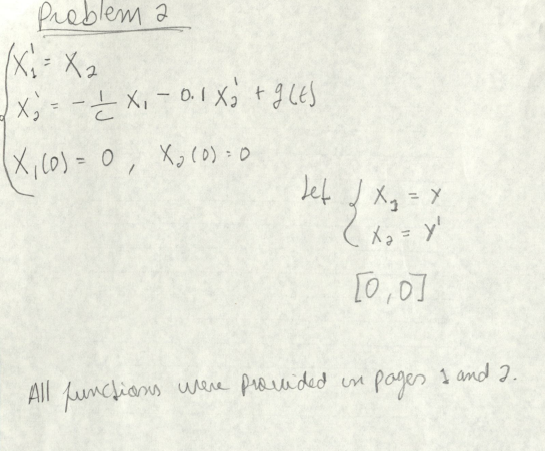 Problem 2
X₁' = X₂
X₂' = -1/C X₁ - 0.1 X₂' + g(t)
X₁(0) = 0, X₂(0) = 0
Let { X₁ = y
X₂ = y'
[0,0]
All functions were provided in pages 1 and 2.